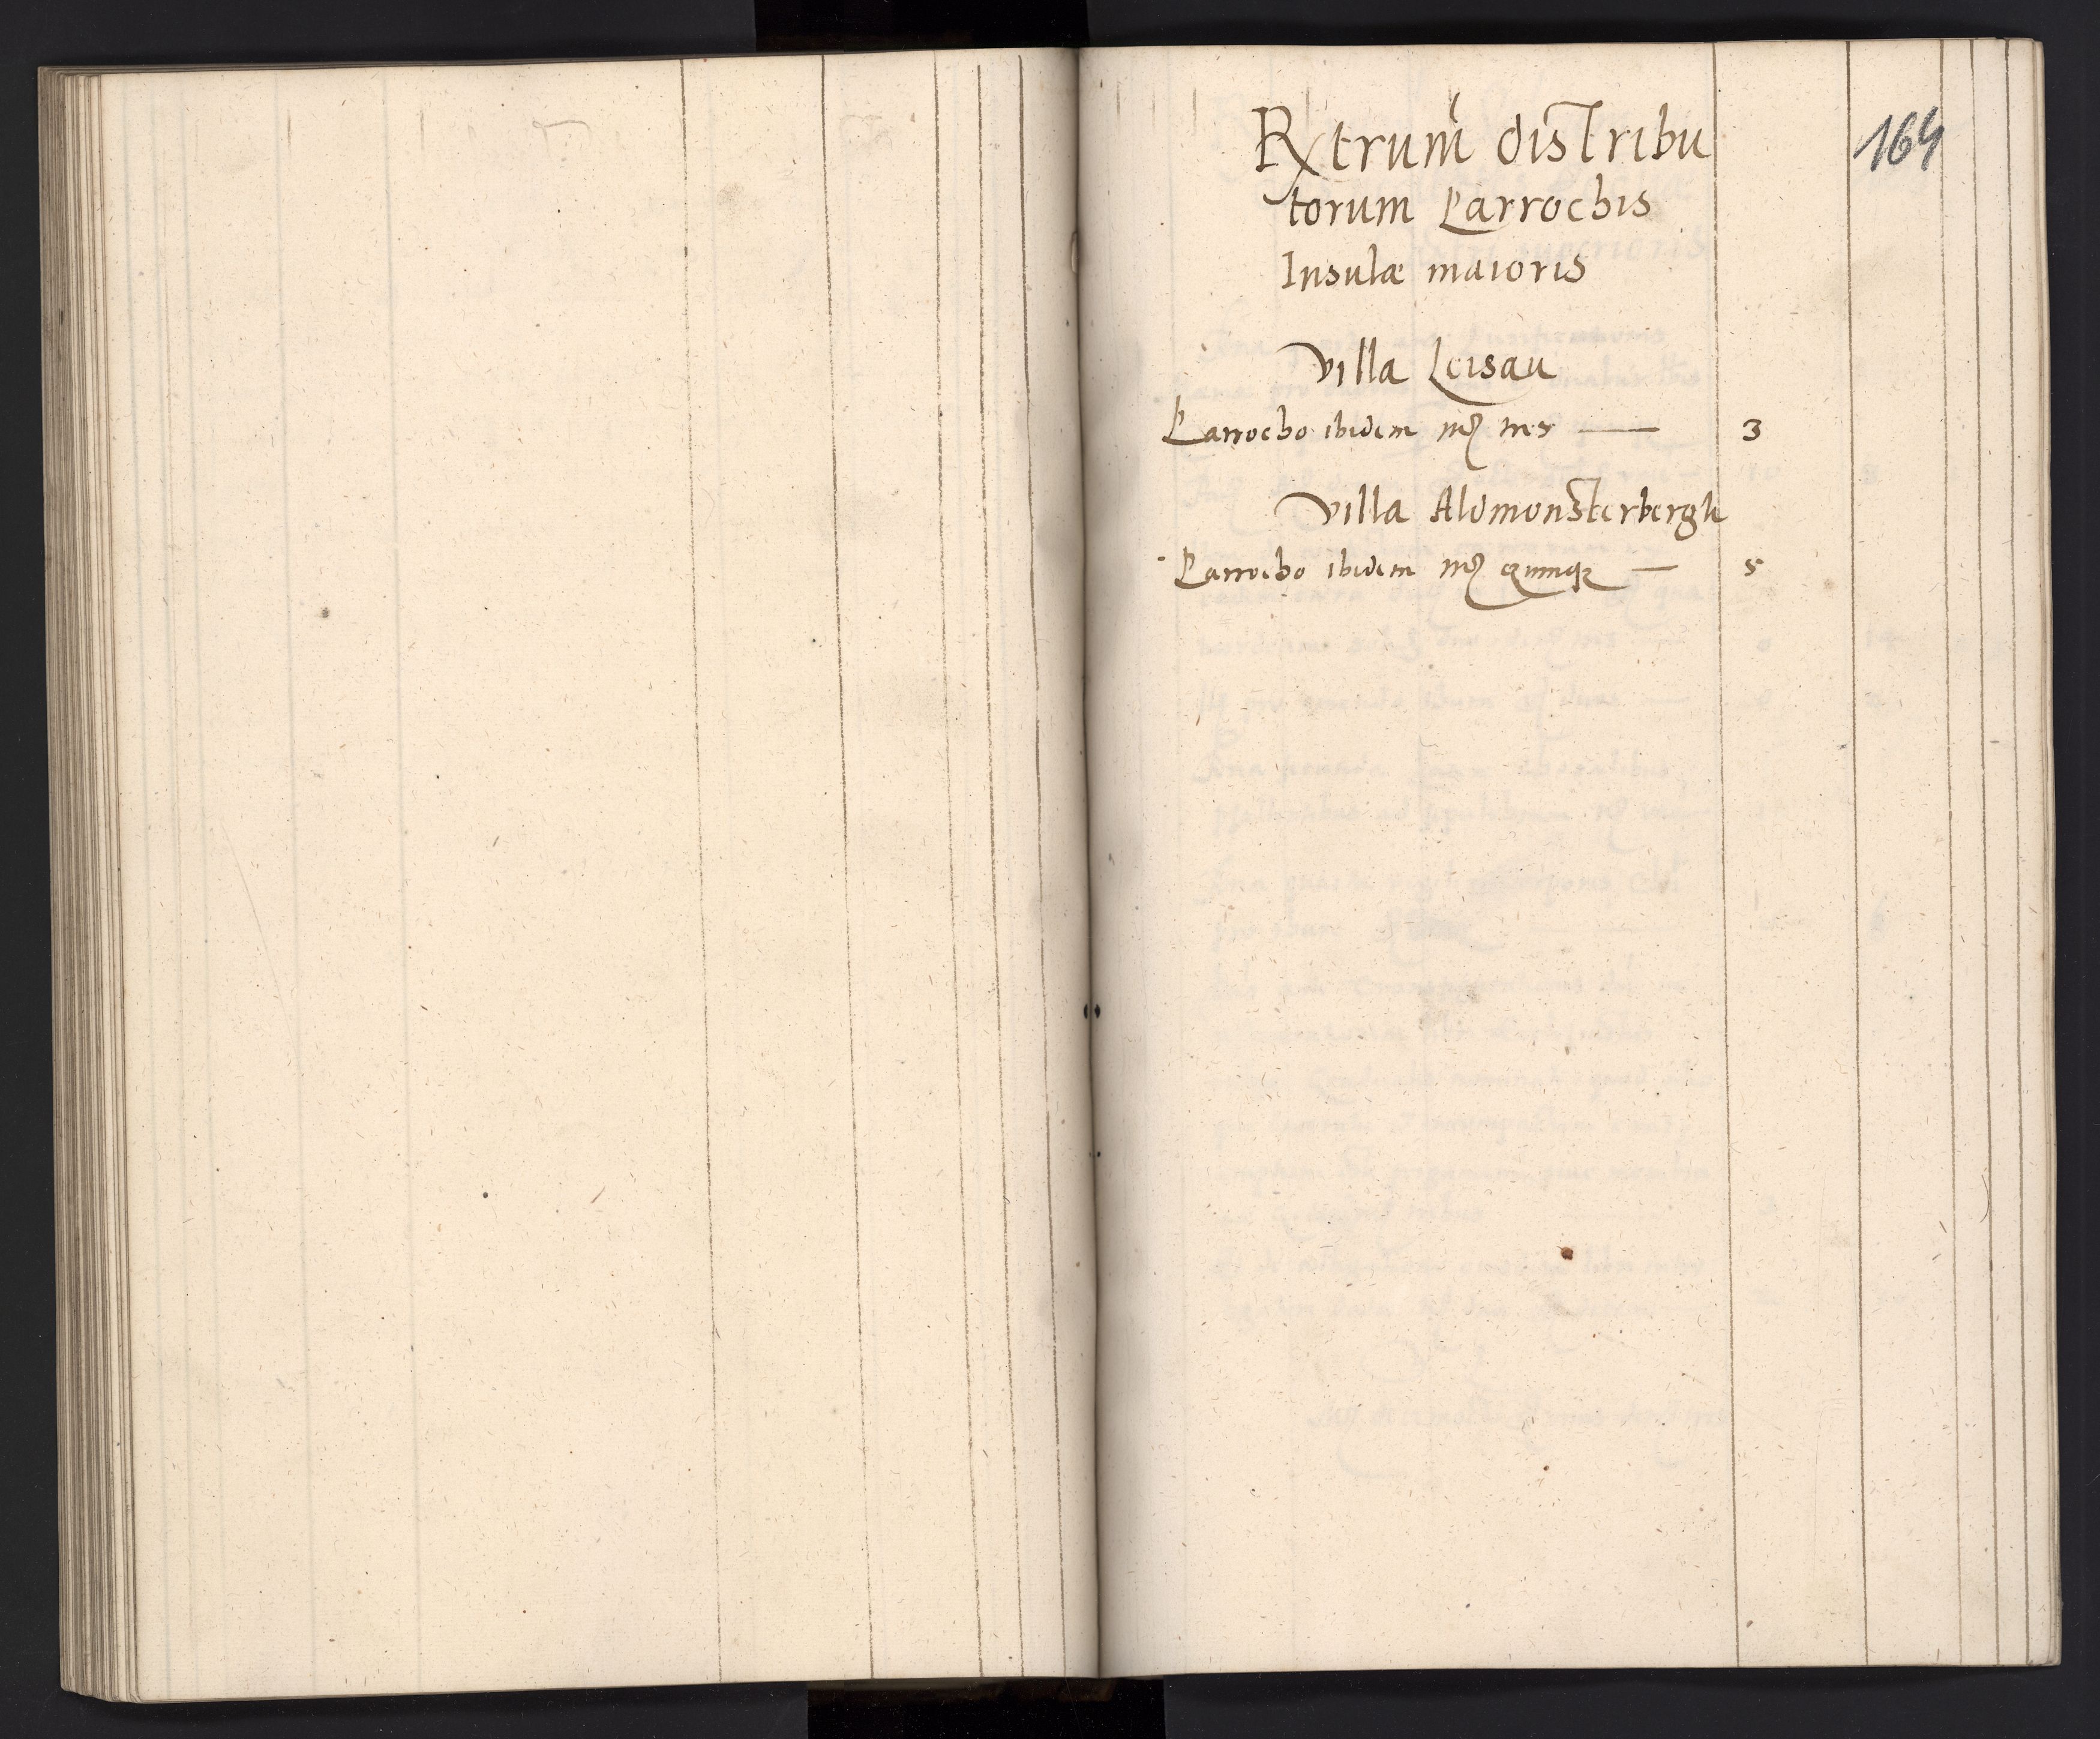 164
Rxtrum distribu
torum Parrochis
Insulæ maioris
Villa Leisau
Parrocho ibidem mr tres — 3
Villa Aldmonsterbergk
Parrocho ibidem mr quinq — 5